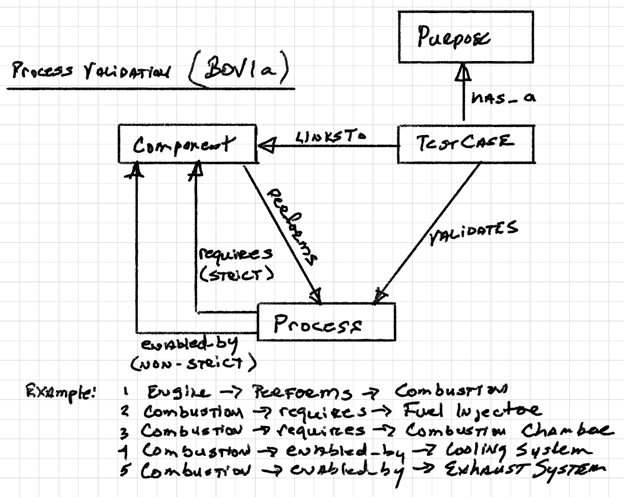 Purpose
Process Validation (BDV1a)
has_a
Component
LINKSTO
TestCASE
Performs
VALIDATES
requires
(STRICT)
Process
enabled_by
(NON-STRICT)
Example: 1 Engine → Performs → Combustion
2 Combustion → requires → Fuel Injector
3 Combustion → requires → Combustion Chamber
4 Combustion → enabled_by → Cooling System
5 Combustion → enabled_by → Exhaust System